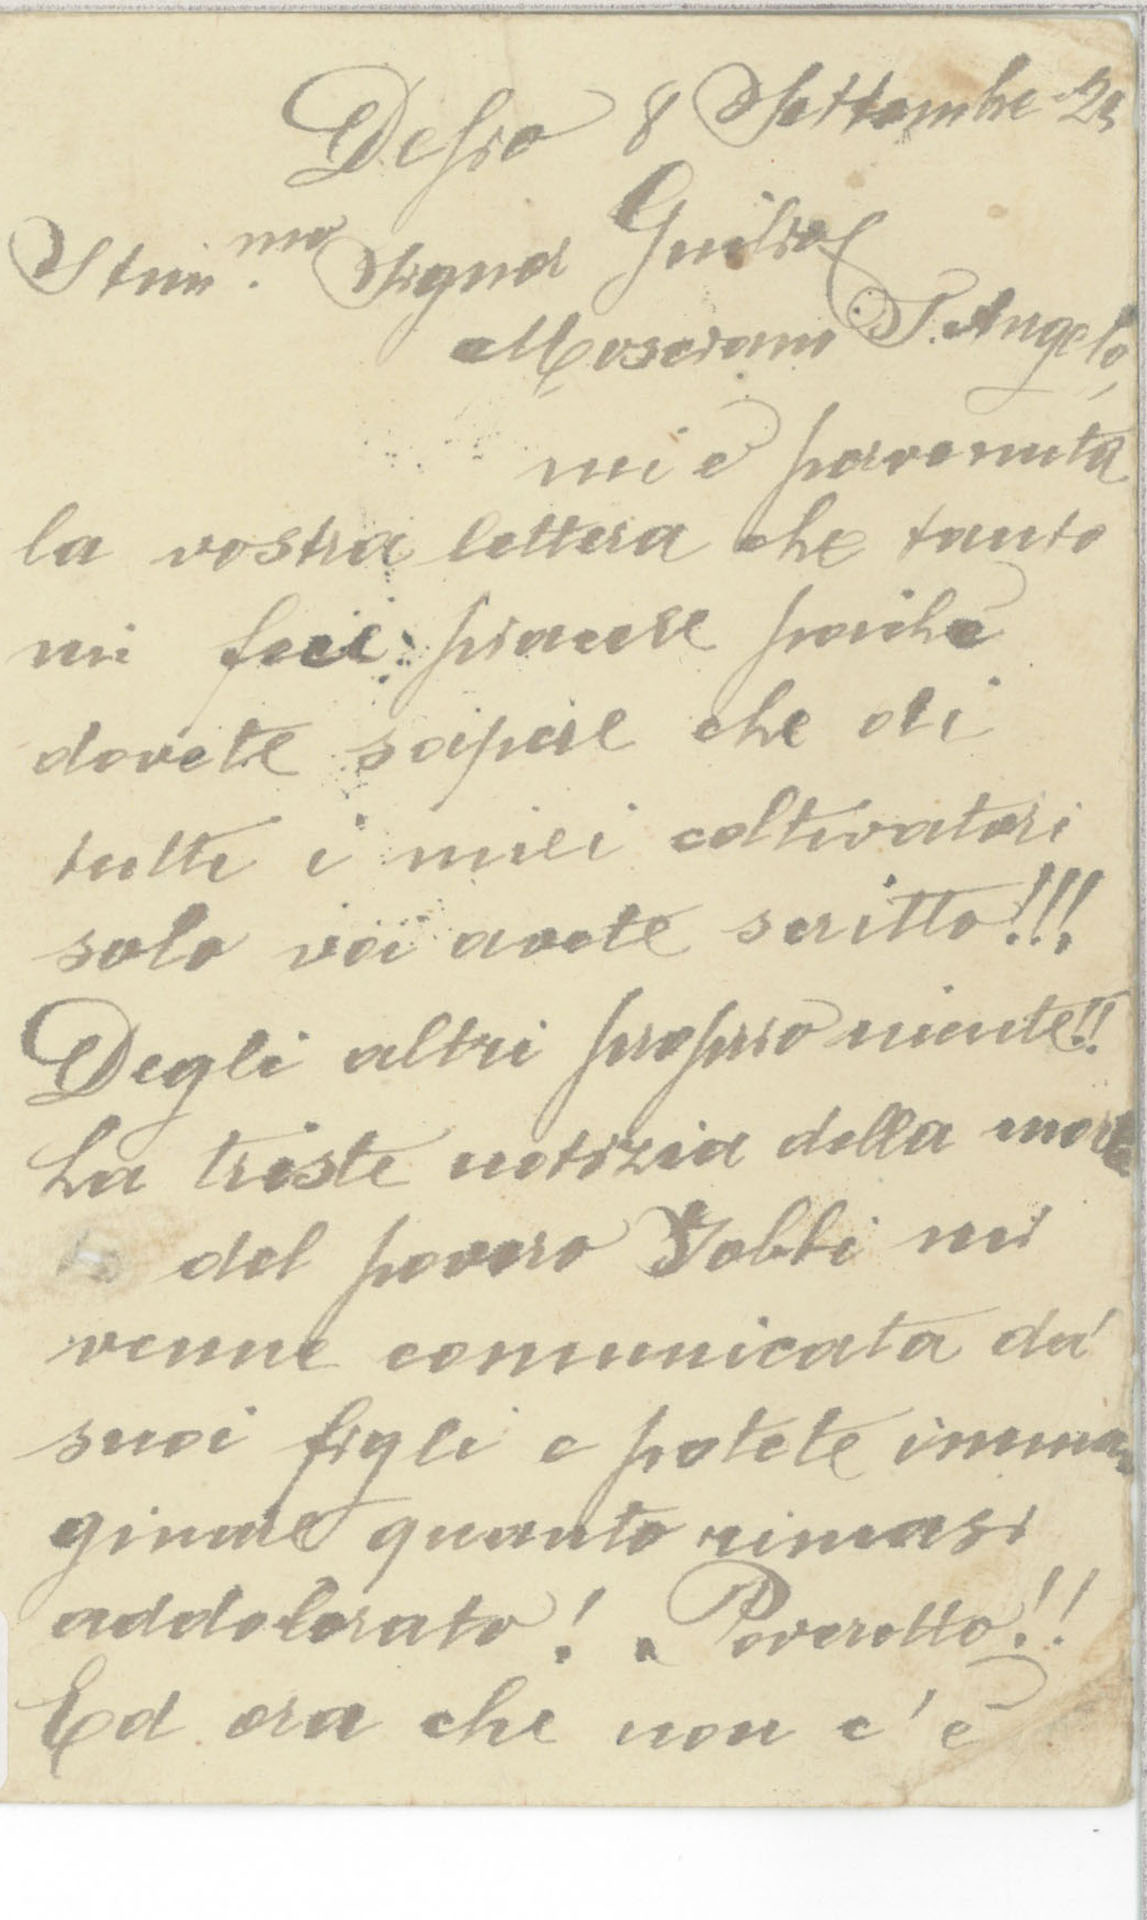 Desio 8 Settembre 23
Stim.mo Signor Guilio
Mosciano S. Angelo,
mi è pervenuta
la vostra lettera che tanto
mi feci piacere poichè
dovete sapere che di
tutti i miei coltivatori
solo voi avete scritto!!!
Degli altri proprio niente!!
La triste notizia della morte
del povero Jobbi mi
venne comunicata da'
suoi figli e potete imma-
ginare quanto rimasi
addolorato! Poveretto!!
Ed ora che non c'è